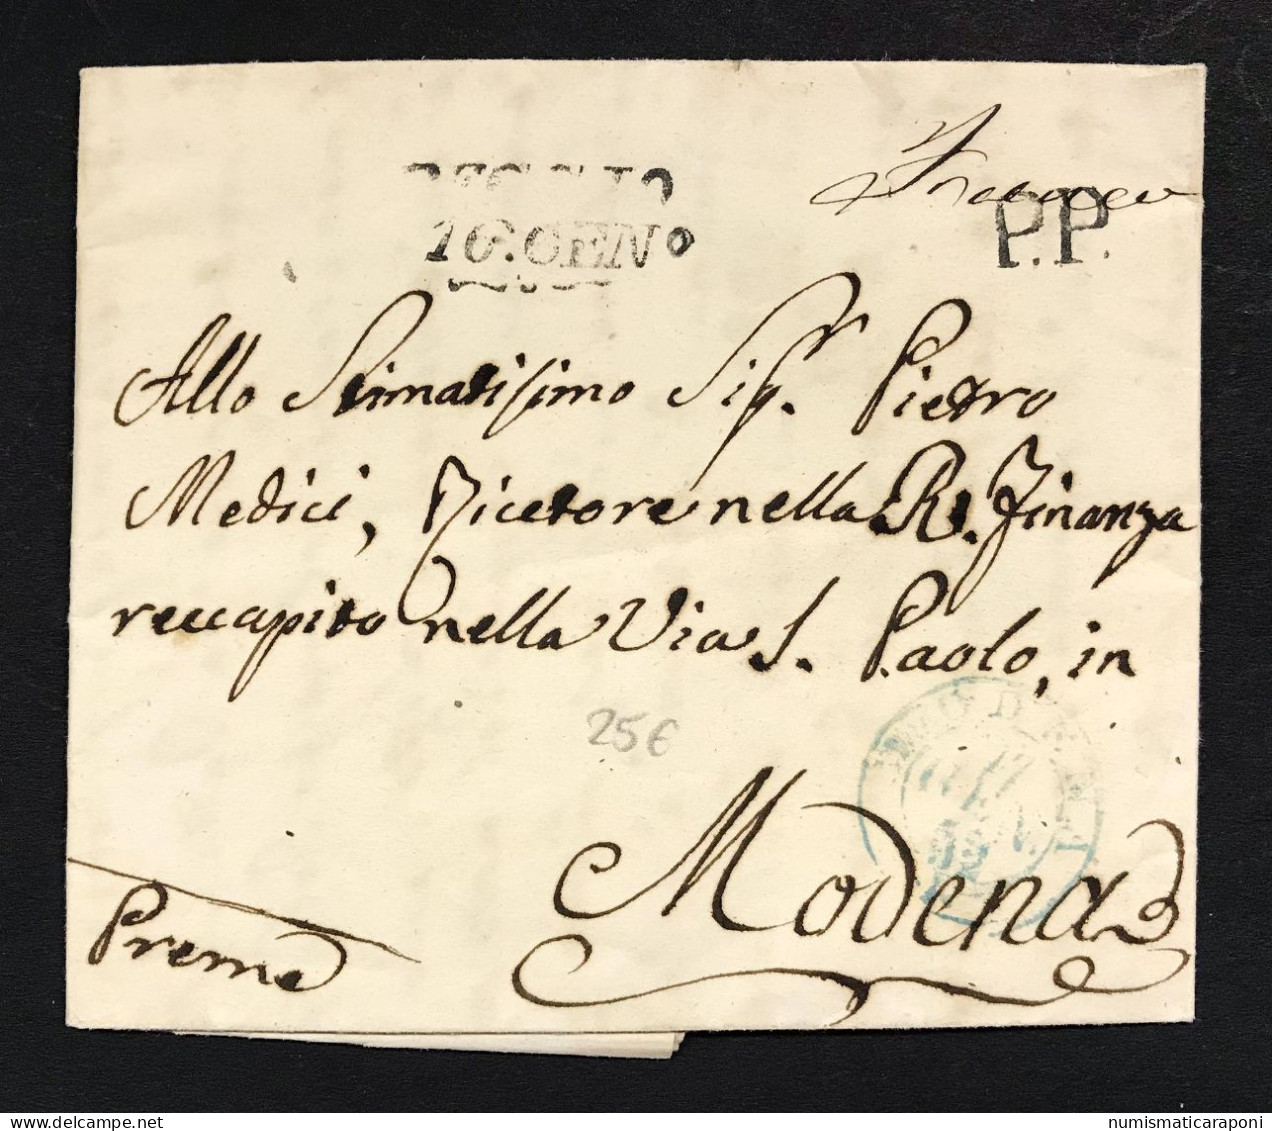 REGGIO
16. GEN.º
Franca
P.P.
Allo Stimatissimo Sig.r Pietro
Medici, Ricetore nella R. Finanza
reccapito nella Via S. Paolo, in
25€
Modena
Preme
numismaticaraponi